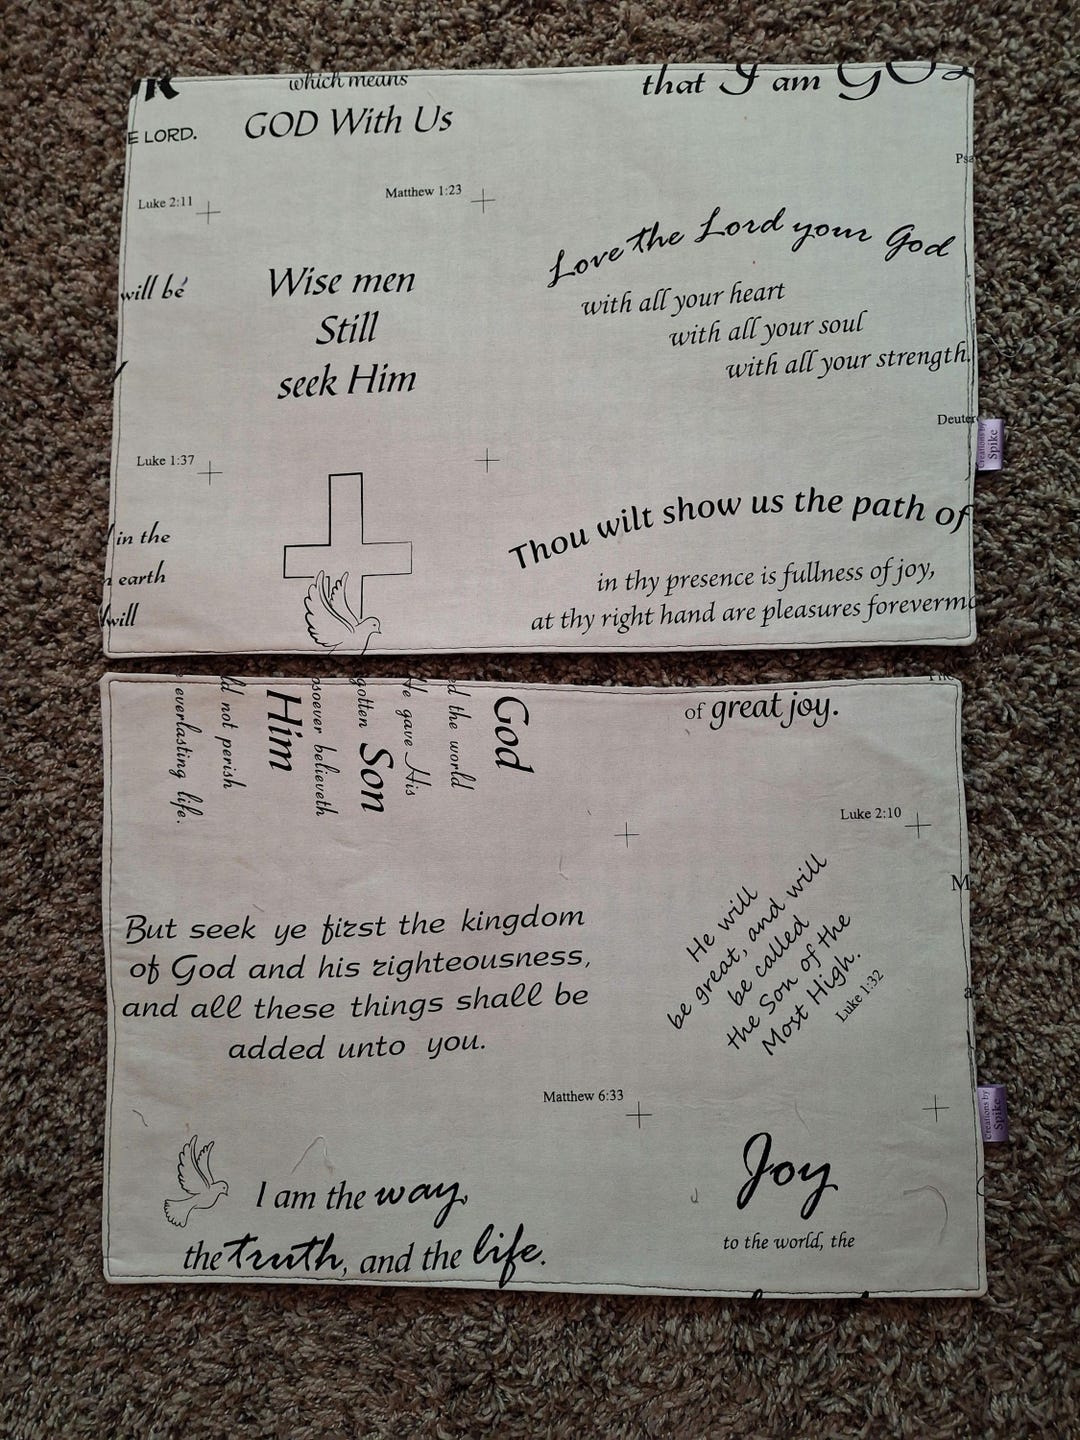 which means
that I am GOD
GOD With Us
E LORD.
Matthew 1:23
Luke 2:11
Love the Lord your God
with all your heart
with all your soul
with all your strength.
Wise men
Still
seek Him
will be
Deuter
Creations by
Spike
Luke 1:37
Thou wilt show us the path of
in thy presence is fullness of joy,
at thy right hand are pleasures foreverm
in the
earth
will
God
ed the world
He gave His
gotten Son
osoever believeth
Him
ld not perish
everlasting life.
of great joy.
Luke 2:10
But seek ye first the kingdom
of God and his righteousness,
and all these things shall be
added unto you.
Matthew 6:33
He will
be great, and will
be called
the Son of the
Most High.
Luke 1:32
Creations by
Spike
I am the way,
the truth, and the life.
Joy
to the world, the